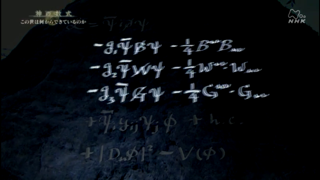 神の数式
この世は何からできているのか
NHK
ψ̄
-g₁ψ̄B̸ψ - ¼B^{μν}B_{μν}
-g₂ψ̄W̸ψ - ¼W^{μν}·W_{μν}
-g₃ψ̄G̸ψ - ¼G^{μν}·G_{μν}
+ψ̄ᵢyᵢⱼψⱼφ + h.c.
+|D_μφ|² - V(φ)